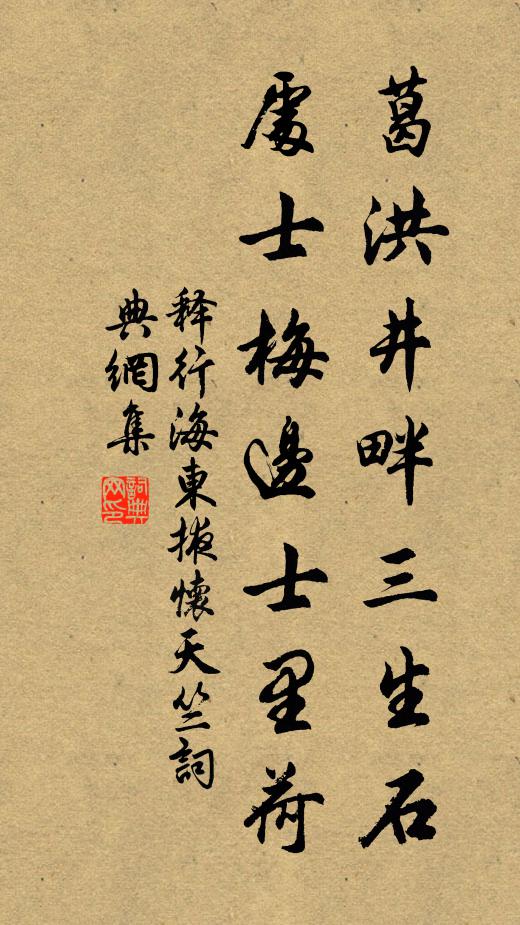 葛洪井畔三生石
處士梅邊士里荷
释行海東掖懷天竺詞
典網集
詞典網印